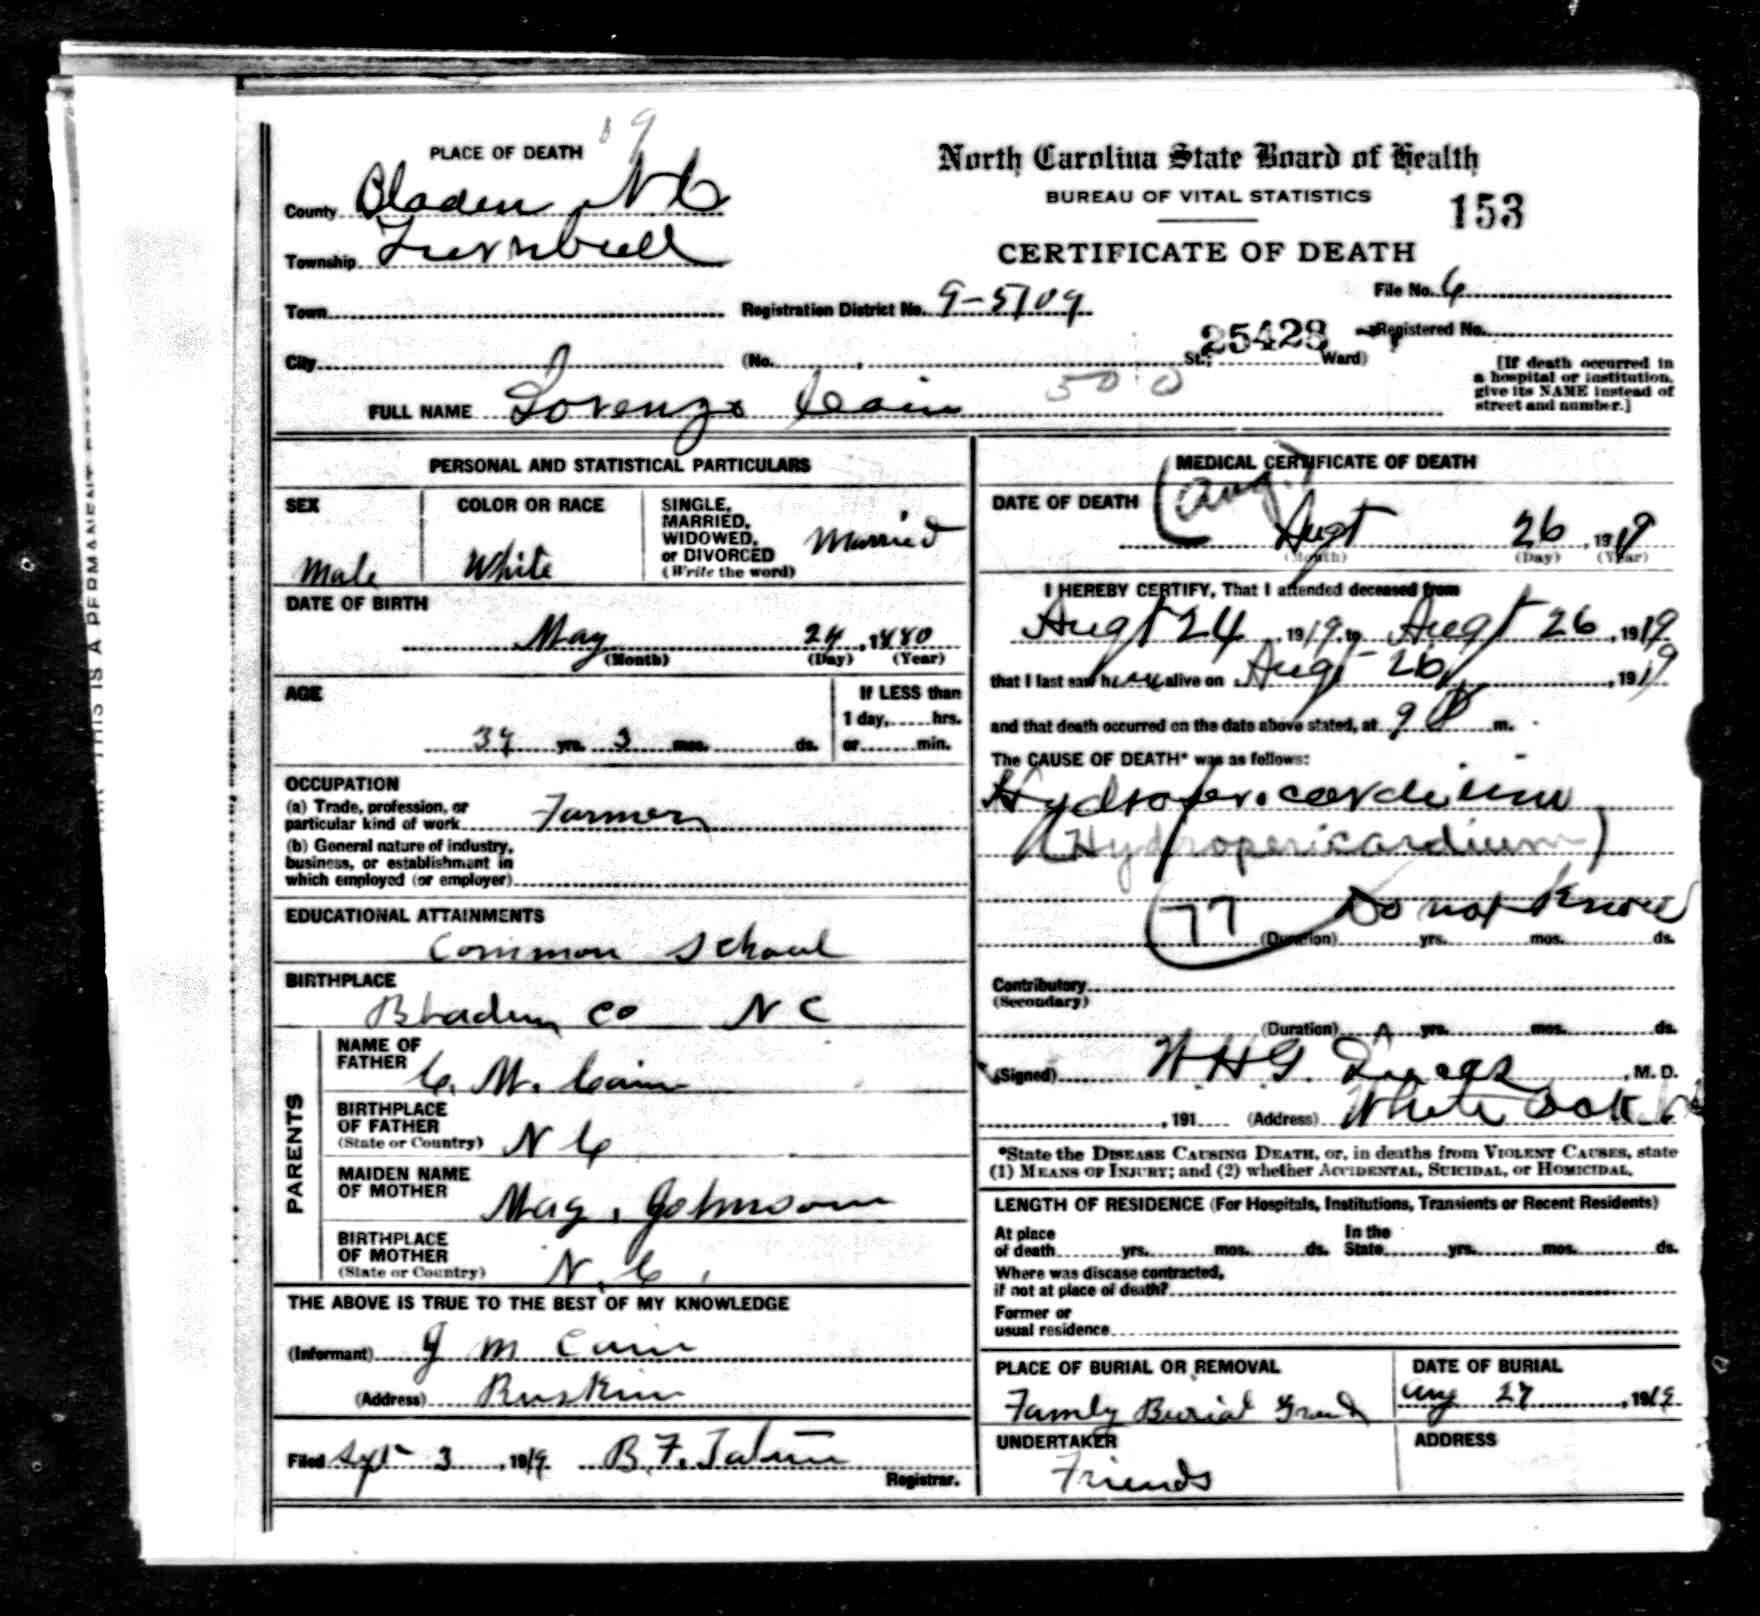 PLACE OF DEATH
County Bladen N C
Township Turnbull
Town
City
North Carolina State Board of Health
BUREAU OF VITAL STATISTICS
153
CERTIFICATE OF DEATH
File No. 6
Registration District No. 9-5109
25428
Registered No.
(No. St.; Ward)
[If death occurred in
a hospital or institution,
give its NAME instead of
street and number.]
FULL NAME Lorenzo Cain
PERSONAL AND STATISTICAL PARTICULARS
SEX
Male
COLOR OR RACE
White
SINGLE,
MARRIED,
WIDOWED,
or DIVORCED
(Write the word)
Married
DATE OF BIRTH
May 24, 1880
(Month) (Day) (Year)
AGE
39 yrs. 3 mos. ds.
If LESS than
1 day, hrs.
or min.
OCCUPATION
(a) Trade, profession, or
particular kind of work Farmer
(b) General nature of industry,
business, or establishment in
which employed (or employer)
EDUCATIONAL ATTAINMENTS
Common School
BIRTHPLACE
Bladen Co N C
PARENTS
NAME OF
FATHER C. M. Cain
BIRTHPLACE
OF FATHER
(State or Country) N C
MAIDEN NAME
OF MOTHER
Mag. Johnson
BIRTHPLACE
OF MOTHER
(State or Country) N. C.
THE ABOVE IS TRUE TO THE BEST OF MY KNOWLEDGE
(Informant) J M Cain
(Address) Ruskin
Filed Sept 3, 1919 B. F. Tatum
Registrar.
MEDICAL CERTIFICATE OF DEATH
DATE OF DEATH
(Aug.)
Augt 26, 1919
(Month) (Day) (Year)
I HEREBY CERTIFY, That I attended deceased from
Augt 24, 1919, to Augt 26, 1919
that I last saw him alive on Augt 26, 1919
and that death occurred on the date above stated, at 9 P m.
The CAUSE OF DEATH* was as follows:
Hydropericardium
(Hydropericardium)
77 Do not Know
(Duration) yrs. mos. ds.
Contributory
(Secondary)
(Duration) yrs. mos. ds.
(Signed) W. H. G. , M. D.
, 191 (Address) White Oak
*State the DISEASE CAUSING DEATH, or, in deaths from VIOLENT CAUSES, state
(1) MEANS OF INJURY; and (2) whether ACCIDENTAL, SUICIDAL, or HOMICIDAL.
LENGTH OF RESIDENCE (For Hospitals, Institutions, Transients or Recent Residents)
At place
of death yrs. mos. ds.
In the
State yrs. mos. ds.
Where was disease contracted,
if not at place of death?
Former or
usual residence
PLACE OF BURIAL OR REMOVAL
Family Burial Ground
DATE OF BURIAL
Aug 27, 1919
UNDERTAKER
Friends
ADDRESS
THIS IS A PERMANENT